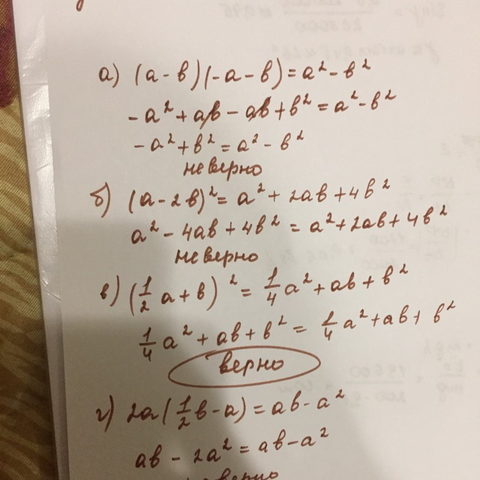 а) (a-в)(-a-в)=a²-в²
-a²+aв-aв+в²=a²-в²
-a²+в²=a²-в²
неверно
б) (a-2в)²=a²+2aв+4в²
a²-4aв+4в²=a²+2aв+4в²
неверно
в) (1/2 a+в)²=1/4 a²+aв+в²
1/4 a²+aв+в²=1/4 a²+aв+в²
верно
г) 2a(1/2 в-a)=aв-a²
aв-2a²=aв-a²